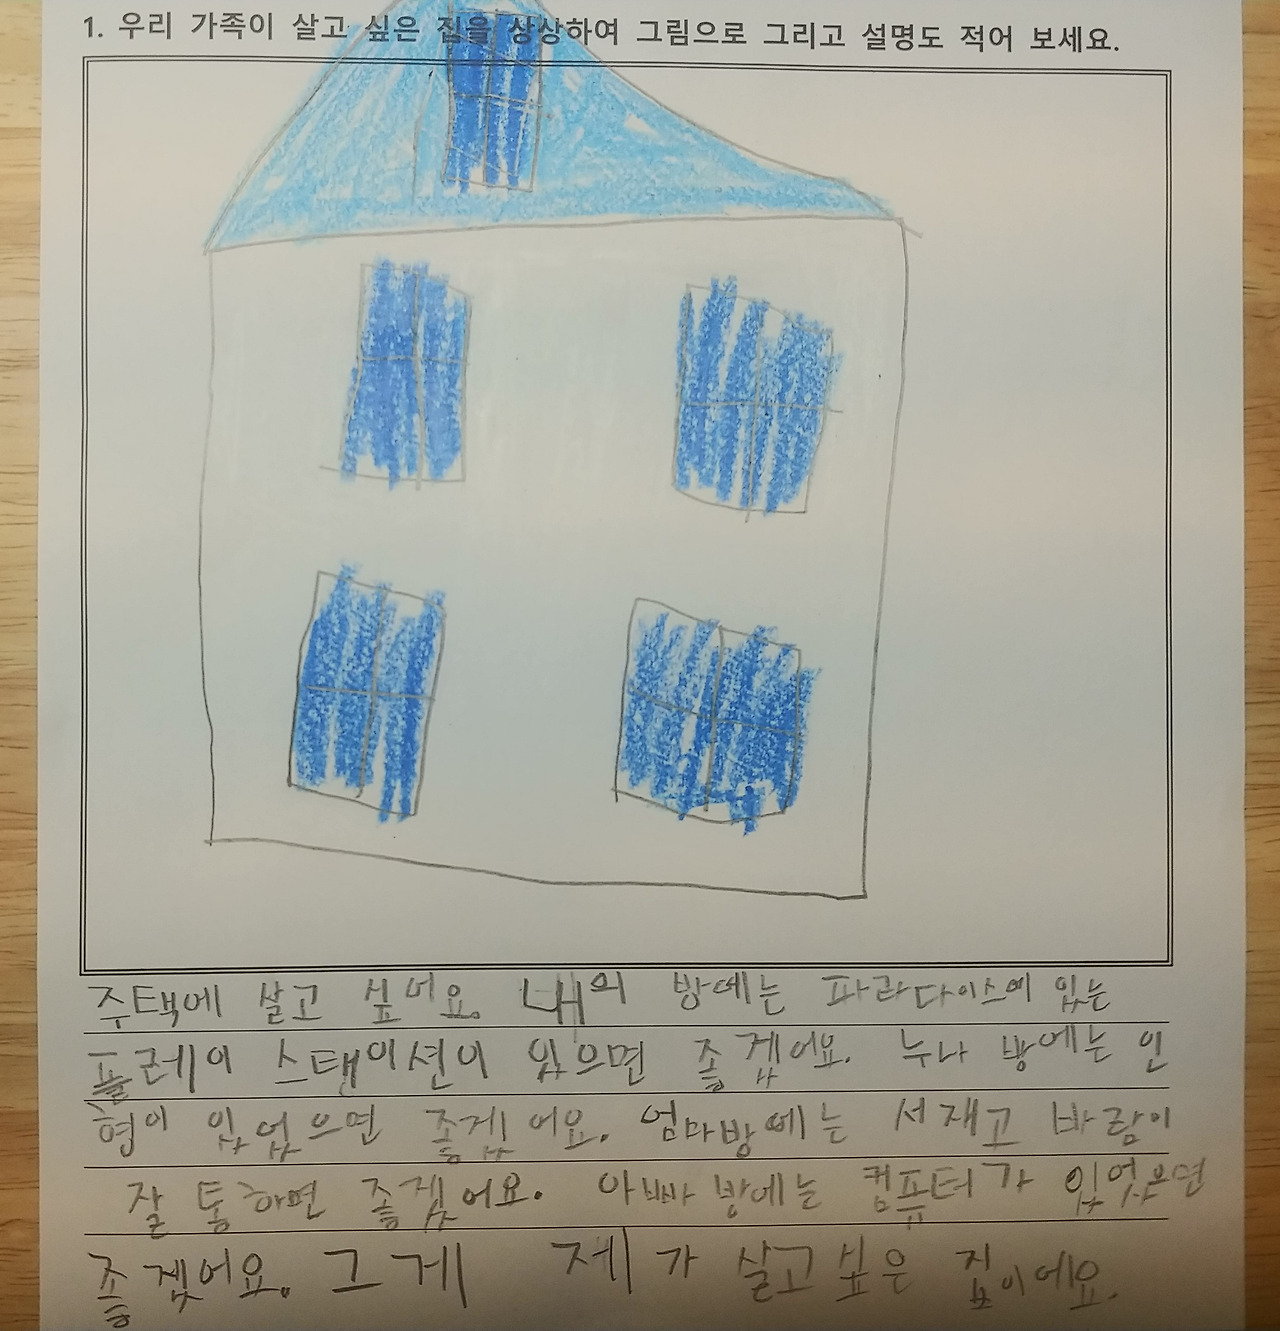 1. 우리 가족이 살고 싶은 집을 상상하여 그림으로 그리고 설명도 적어 보세요.
주택에 살고 싶어요. 내의 방에는 파라다이스에 있는
플레이 스탠이션이 있으면 좋겠어요. 누나 방에는 인
형이 있었으면 좋겠어요. 엄마방에는 서재고 바람이
잘 통하면 좋겠어요. 아빠 방에는 컴퓨터가 있었으면
좋겠어요. 그게 제가 살고싶은 집이에요.